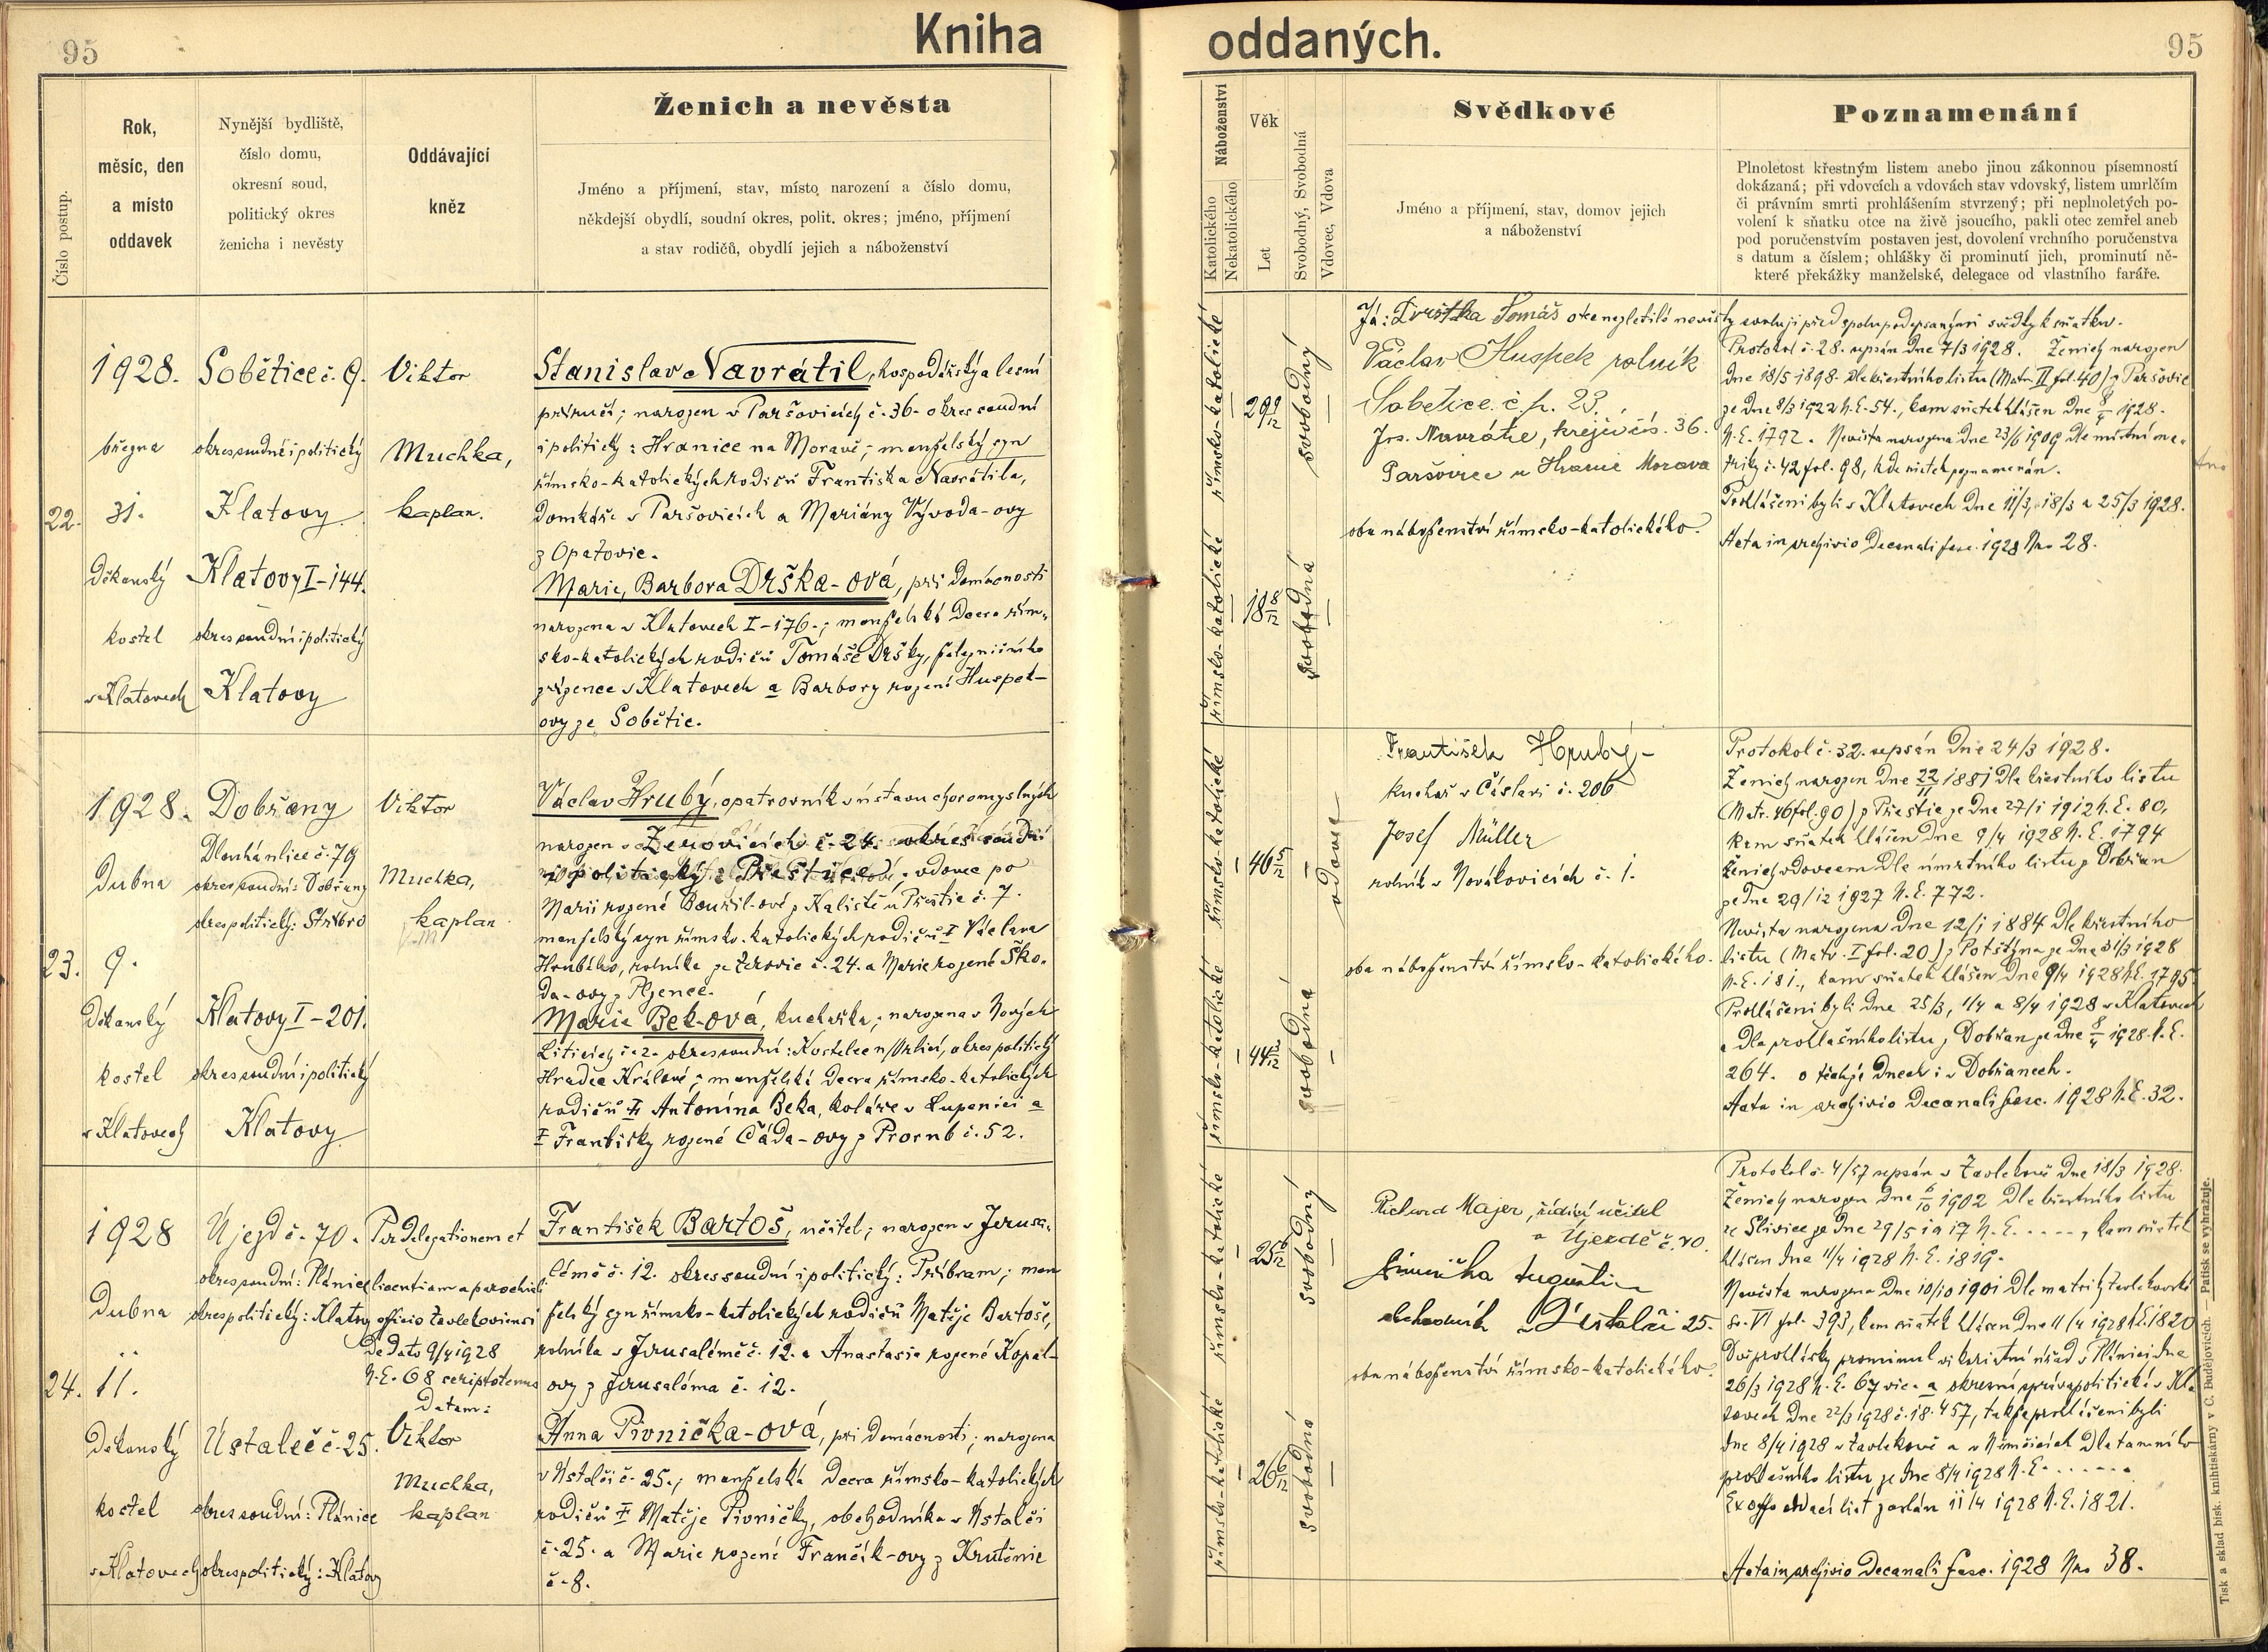 95
Kniha
oddaných.
95
Číslo postup.
Rok,
měsíc, den
a místo
oddavek
Nynější bydliště,
číslo domu,
okresní soud,
politický okres
ženicha i nevěsty
Oddávající
kněz
Ženich a nevěsta
Jméno a příjmení, stav, místo narození a číslo domu,
někdejší obydlí, soudní okres, polit. okres; jméno, příjmení
a stav rodičů, obydlí jejich a náboženství
Náboženství
Katolického
Nekatolického
Věk
Let
Svobodný, Svobodná
Vdovec, Vdova
Svědkové
Jméno a příjmení, stav, domov jejich
a náboženství
Poznamenání
Plnoletost křestným listem anebo jinou zákonnou písemností
dokázaná; při vdovcích a vdovách stav vdovský, listem umrlčím
či právním smrti prohlášením stvrzený; při neplnoletých po-
volení k sňatku otce na živě jsoucího, pakli otec zemřel aneb
pod poručenstvím postaven jest, dovolení vrchního poručenstva
s datum a číslem; ohlášky či prominutí jich, prominutí ně-
které překážky manželské, delegace od vlastního faráře.
22.
1928.
března
31.
Děkanský
kostel
v Klatovech
Sobětice č. 9.
okres soudní i politický
Klatovy
Klatovy I-144.
okres soudní i politický
Klatovy
Viktor
Muchka,
kaplan.
Stanislav Navrátil, hospodářský a lesní
příručí; narozen v Paršovicích č. 36. okres soudní
i politický: Hranice na Moravě; manželský syn
římsko-katolických rodičů Františka Navrátila,
domkáře v Paršovicích a Mariány Vývoda-ovy
z Opatovic.
Marie, Barbora Drška-ová, při domácnosti
narozena v Klatovech I-176.; manželská dcera řím-
sko-katolických rodičů Tomáše Dršky, železničního
zřízence v Klatovech a Barbory rozené Huspek-
ovy ze Sobětic.
římsko-katolické
29 9/12
svobodný
římsko-katolické
18 8/12
svobodná
Já: Drštka Tomáš otec nezletilé nevěsty svoluji před spolupodepsanými svědky k sňatku.
Václav Huspek rolník
Sobetice. č. p. 23.
Jos. Navrátil, krejčí čís. 36.
Paršovice u Hranic Morava
oba náboženství římsko-katolického.
Protokol č. 28. sepsán dne 7/3 1928. Ženich narozen
dne 18/5 1898. dle křestního listu (Matr. II fol. 40) z Paršovic
ze dne 8/3 1922 N.E. 54., kam sňatek hlášen dne 1928.
N.E. 1792. Nevěsta narozena dne 23/6 1909 dle místní ma-
triky č. 42 fol. 98, kde sňatek poznamenán.
Prohlášeni byli v Klatovech dne 11/3, 18/3 a 25/3 1928.
Acta in archivio Decanali fasc. 1928 Nro 28.
23.
1928.
Dubna
9.
Děkanský
kostel
v Klatovech
Dobřany
Dlouhá ulice č. 79
okres soudní: Dobřany
okres politický: Stříbro
Klatovy I-201.
okres soudní i politický
Klatovy
Viktor
Muchka,
kaplan
Václav Hrubý, opatrovník v ústavu choromyslných
narozen v Žerovicích č. 24. okres soudní
i politický: Přeštice. vdovec po
Marii rozené Bouřil-ové z Kaliště u Přeštic č. 7.
manželský syn římsko-katolických rodičů Václava
Hrubého, rolníka ze Žerovic č. 24. a Marie rozené Ško-
da-ovy z Pjence.
Marie Bek-ová, kuchařka; narozena v Nových
Liticích č. 2. okres soudní: Kostelec n/Orlicí, okres politický
Hradec Králové; manželská dcera římsko-katolických
rodičů † Antonína Beka, koláře v Lupenici a
† Františky rozené Čáda-ovy z Prorub č. 52.
římsko-katolické
46 5/12
vdovec
římsko-katolické
44 3/12
svobodná
František Hrubý-
kuchař v Čáslavi č. 206
Josef Müller
rolník v Novákovicích č. 1.
oba náboženství římsko-katolického.
Protokol č. 32. sepsán dne 24/3 1928.
Ženich narozen dne 22/11 1881 dle křestního listu
(Matr. 46 fol. 90) z Přeštic ze dne 27/1 1912 N.E. 80,
kam sňatek hlášen dne 9/4 1928 N.E. 1794
Ženich vdovcem dle úmrtního listu z Dobřan
ze dne 29/12 1927 N.E. 772.
Nevěsta narozena dne 12/1 1884 dle křestního
listu (Matr. I fol. 20) z Potštýna ze dne 31/3 1928
N.E. 181., kam sňatek hlášen dne 9/4 1928 N.E. 1795.
Prohlášeni byli dne 25/3, 1/4 a 8/4 1928 v Klatovech
a dle prohlašního listu z Dobřan ze dne 8/4 1928 N.E.
264. o téchže dnech i v Dobřanech.
Acta in archivio Decanali fasc. 1928 N.E. 32.
24.
1928
Dubna
11.
Děkanský
kostel
v Klatovech
Újezd č. 70.
okres soudní: Plánice
okres politický: Klatovy
Ústaleč č. 25.
okres soudní: Plánice
okres politický: Klatovy
Per delegationem et
licentiam a parochiali
officio Zavlekoviensi
de dato 9/4 1928
N.E. 68 scriptotenus
datam:
Viktor
Muchka,
kaplan
František Bartoš, učitel; narozen v Jerusa-
lémě č. 12. okres soudní i politický: Příbram; man
želský syn římsko-katolických rodičů Matěje Bartoše,
rolníka v Jerusalémě č. 12. a Anastasie rozené Kopal-
ovy z Jerusaléma č. 12.
Anna Pivnička-ová, při domácnosti; narozena
v Ústalči č. 25.; manželská dcera římsko-katolických
rodičů † Matěje Pivničky, obchodníka v Ústalči
č. 25. a Marie rozené Frančík-ovy z Krutěnic
č. 8.
římsko-katolické
25 6/12
svobodný
římsko-katolické
26 6/12
svobodná
Richard Majer, řídící učitel
v Újezdě č. 70.
Pivnička Augustin
obchodník v Ústalči 25.
oba náboženství římsko-katolického.
Protokol č. 4/57 sepsán v Zavlekově dne 18/3 1928.
Ženich narozen dne 6/10 1902 dle křestního listu
ze Slivice ze dne 29/5 1917 N.E. ....., kam sňatek
hlášen dne 11/4 1928 N.E. 1819.
Nevěsta narozena dne 10/10 1901 dle matriky Zavlekovské
VI fol. 393, kam sňatek hlášen dne 11/4 1928 N.E. 1820
Dvě prohlášky prominul vikariátní úřad v Plánici dne
26/3 1928 N.E. 67 vic. a okresní správa politická v Kla-
tovech dne 22/3 1928 č. 18.457, takže prohlášeni byli
dne 8/4 1928 v Zavlekově a v Němčicích dle tamního
prohlašního listu ze dne 8/4 1928 N.E. ......
Ex offo oddací list zaslán 11/4 1928 N.E. 1821.
Acta in archivio Decanali fasc. 1928 Nro 38.
Tisk a sklad bisk. knihtiskárny v C. Budějovicích. — Patisk se vyhražuje.